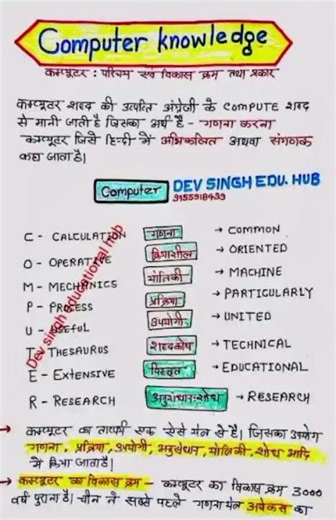 Computer knowledge
कम्प्यूटर : परिचय एवं विकास क्रम तथा प्रकार
कम्प्यूटर शब्द की उत्पत्ति अंग्रेजी के COMPUTE शब्द
से मानी जाती है जिसका अर्थ है - गणना करना
कम्प्यूटर जिसे हिन्दी में अभिकलित्र अथवा संगणक
कहा जाता है।
Computer DEV SINGH EDU. HUB
9155918439
C - CALCULATION गणना → COMMON
O - OPERATE क्रियाशील → ORIENTED
M - MECHANICS यांत्रिकी → MACHINE
P - PROCESS प्रक्रिया → PARTICULARLY
U - USEFUL उपयोगी → UNITED
T - THESAURUS शब्दकोष → TECHNICAL
E - EXTENSIVE विस्तृत → EDUCATIONAL
R - RESEARCH अनुसंधान/शोध → RESEARCH
Dev singh educational hub
→ कम्प्यूटर का तात्पर्य एक ऐसे यंत्र से है। जिसका उपयोग
गणना, प्रक्रिया, उपयोगी, अनुसंधान, यांत्रिकी, शोध आदि
में किया जाता है।
→ कम्प्यूटर का विकास क्रम - कम्प्यूटर का विकास क्रम 3000
वर्ष पुराना है। चीन ने सबसे पहले गणना यंत्र अबेकस का